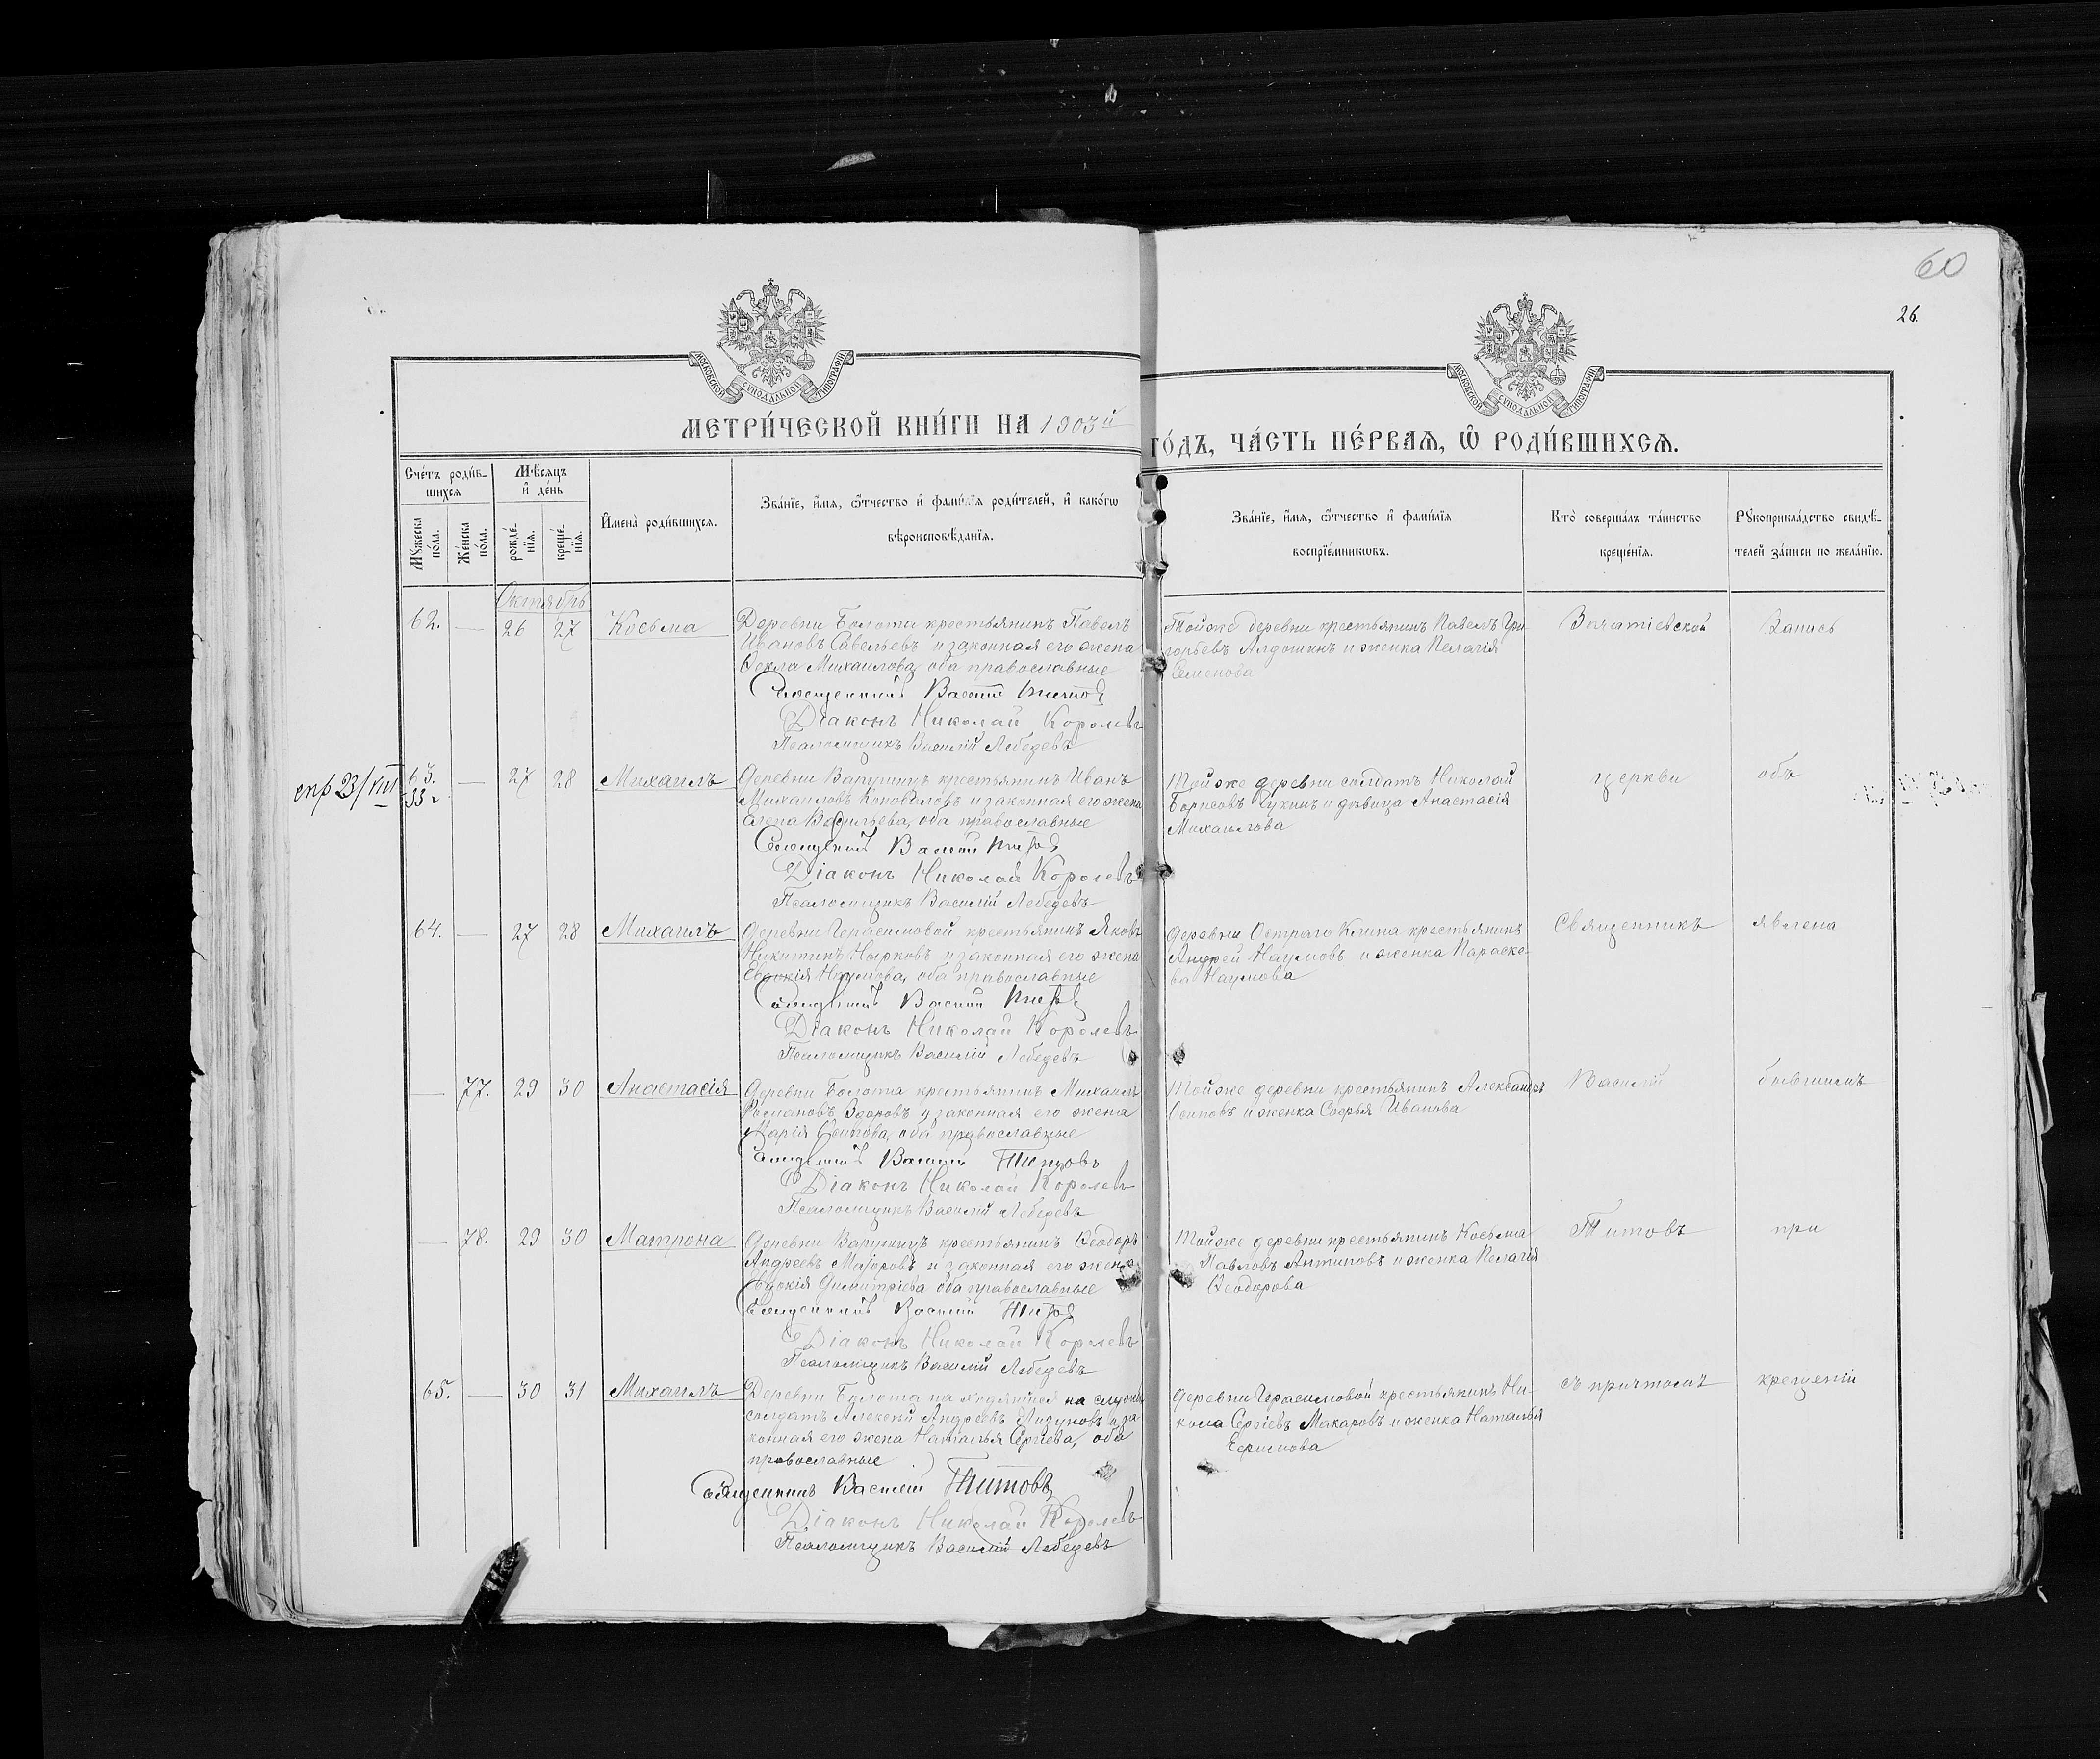 60
26.
МОСКОВСКОЙ СѴНОДАЛЬНОЙ ТИПОГРАФІИ
МОСКОВСКОЙ СѴНОДАЛЬНОЙ ТИПОГРАФІИ
МЕТРИ́ЧЕСКОЙ КНИ́ГИ НА 1903й
ГО́ДЪ, ЧА́СТЬ ПЕ́РВАѦ, Ѽ РОДИ́ВШИХСѦ.
Сче́тъ роди́в-
шихсѧ
Мѣ́сѧцъ
и҆ де́нь
Мꙋ́жеска по́ла.
Же́нска по́ла.
рожде́-
нїѧ.
креще́-
нїѧ.
И҆мена̀ роди́вшихсѧ.
Зва́нїе, и҆́мѧ, ѻ҆́тчество и҆ фами́лїѧ роди́телей, и҆ како́гѡ
вѣроисповѣ́данїѧ.
Зва́нїе, и҆́мѧ, ѻ҆́тчество и҆ фами́лїѧ
воспрїе́мникѡвъ.
Кто̀ соверша́лъ та́инство
креще́нїѧ.
Рꙋкоприкла́дство свидѣ́-
телей за́писи по жела́нїю.
Октябрь
62. — 26 27 Косьма
Деревни Болота крестьянинъ Павелъ
Ивановъ Савельевъ и законная его жена
Ѳекла Михаилова, оба православные
Священникъ Василій Титовъ
Діаконъ Николай Королевъ
Псаломщикъ Василій Лебедевъ
Тойже деревни крестьянинъ Павелъ Гри
горьевъ Алдошинъ и женка Пелагія
Семенова
церкви
Запись
63. — 27 28 Михаилъ
Деревни крестьянинъ Иванъ
Михаиловъ Коноваловъ и законная его жена
Васильева, оба православные
Священникъ Василій Титовъ
Діаконъ Николай Королевъ
Псаломщикъ Василій Лебедевъ
Тойже деревни солдатъ Николай
Борисовъ и дѣвица Анастасія
Михаилова
объ
64. — 27 28 Михаилъ
Деревни Герасимовой крестьянинъ Яковъ
Никитинъ и законная его жена
Евдокія Наумова, оба православные
Священникъ Василій Титовъ
Діаконъ Николай Королевъ
Псаломщикъ Василій Лебедевъ
Деревни Остраго Клина крестьянинъ
Андрей Наумовъ и женка Параске-
ва Наумова
Священникъ
явлена
— 77. 29 30 Анастасія
Деревни Болота крестьянинъ Михаилъ
Романовъ и законная его жена
Марія Осипова, оба православные
Священникъ Василій Титовъ
Діаконъ Николай Королевъ
Псаломщикъ Василій Лебедевъ
Тойже деревни крестьянинъ Александръ
Осиповъ и женка Софья Иванова
Василій
бывшимъ
— 78. 29 30 Матрона
Деревни крестьянинъ Ѳеодоръ
Андреевъ Маіоровъ и законная его жена
Евдокія Димитріева оба православные
Священникъ Василій Титовъ
Діаконъ Николай Королевъ
Псаломщикъ Василій Лебедевъ
Тойже деревни крестьянинъ Косьма
Павловъ Антиповъ и женка Пелагія
Ѳеодорова
Титовъ
при
65. — 30 31 Михаилъ
Деревни Болота находящійся на службѣ
солдатъ Алексѣй Андреевъ и за
конная его жена Наталья Сергіева, оба
православные
Священникъ Василій Титовъ
Діаконъ Николай Королевъ
Псаломщикъ Василій Лебедевъ
Деревни Герасимовой крестьянинъ Ни-
кола Сергіевъ Макаровъ и женка Наталья
Ефимова
съ причтомъ
крещеніи